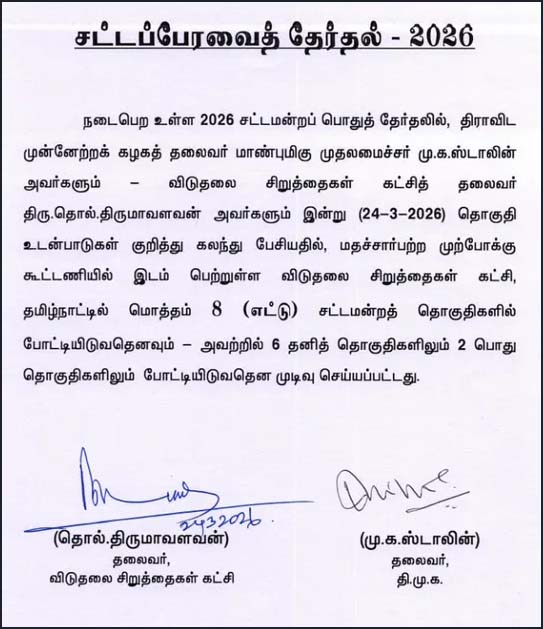 சட்டப்பேரவைத் தேர்தல் - 2026
நடைபெற உள்ள 2026 சட்டமன்றப் பொதுத் தேர்தலில், திராவிட
முன்னேற்றக் கழகத் தலைவர் மாண்புமிகு முதலமைச்சர் மு.க.ஸ்டாலின்
அவர்களும் – விடுதலை சிறுத்தைகள் கட்சித் தலைவர்
திரு.தொல்.திருமாவளவன் அவர்களும் இன்று (24–3–2026) தொகுதி
உடன்பாடுகள் குறித்து கலந்து பேசியதில், மதச்சார்பற்ற முற்போக்கு
கூட்டணியில் இடம் பெற்றுள்ள விடுதலை சிறுத்தைகள் கட்சி,
தமிழ்நாட்டில் மொத்தம் 8 (எட்டு) சட்டமன்றத் தொகுதிகளில்
போட்டியிடுவதெனவும் – அவற்றில் 6 தனித் தொகுதிகளிலும் 2 பொது
தொகுதிகளிலும் போட்டியிடுவதென முடிவு செய்யப்பட்டது.
24/3/2026
(தொல்.திருமாவளவன்) (மு.க.ஸ்டாலின்)
தலைவர், தலைவர்,
விடுதலை சிறுத்தைகள் கட்சி தி.மு.க.